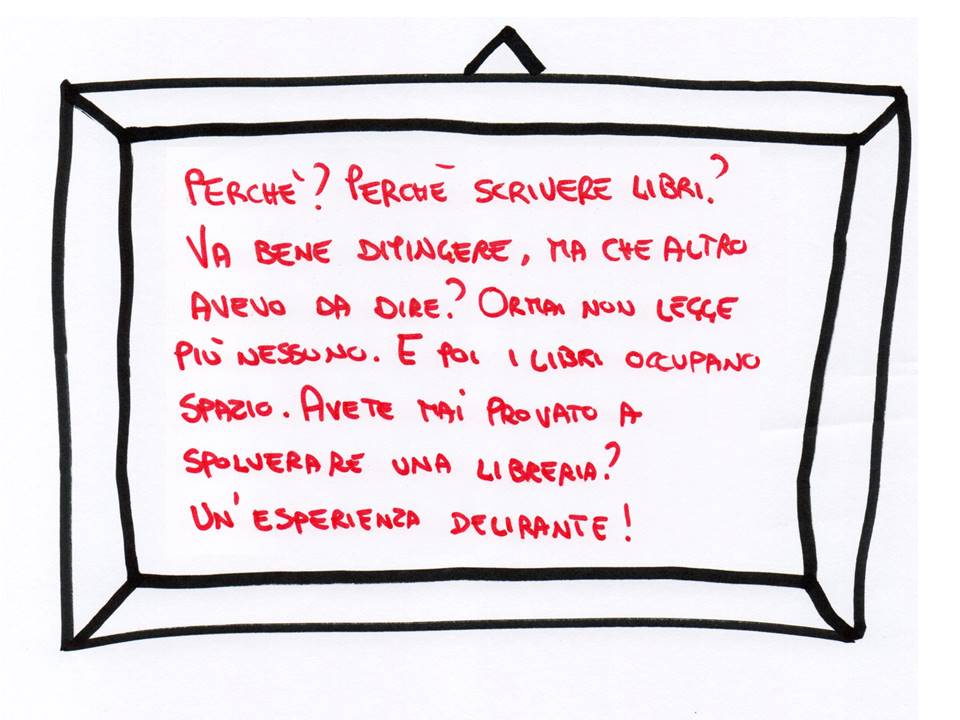 PERCHÈ? PERCHÈ SCRIVERE LIBRI?
VA BENE DIPINGERE, MA CHE ALTRO
AVEVO DA DIRE? ORMAI NON LEGGE
PIÙ NESSUNO. E POI I LIBRI OCCUPANO
SPAZIO. AVETE MAI PROVATO A
SPOLVERARE UNA LIBRERIA?
UN'ESPERIENZA DELIRANTE!